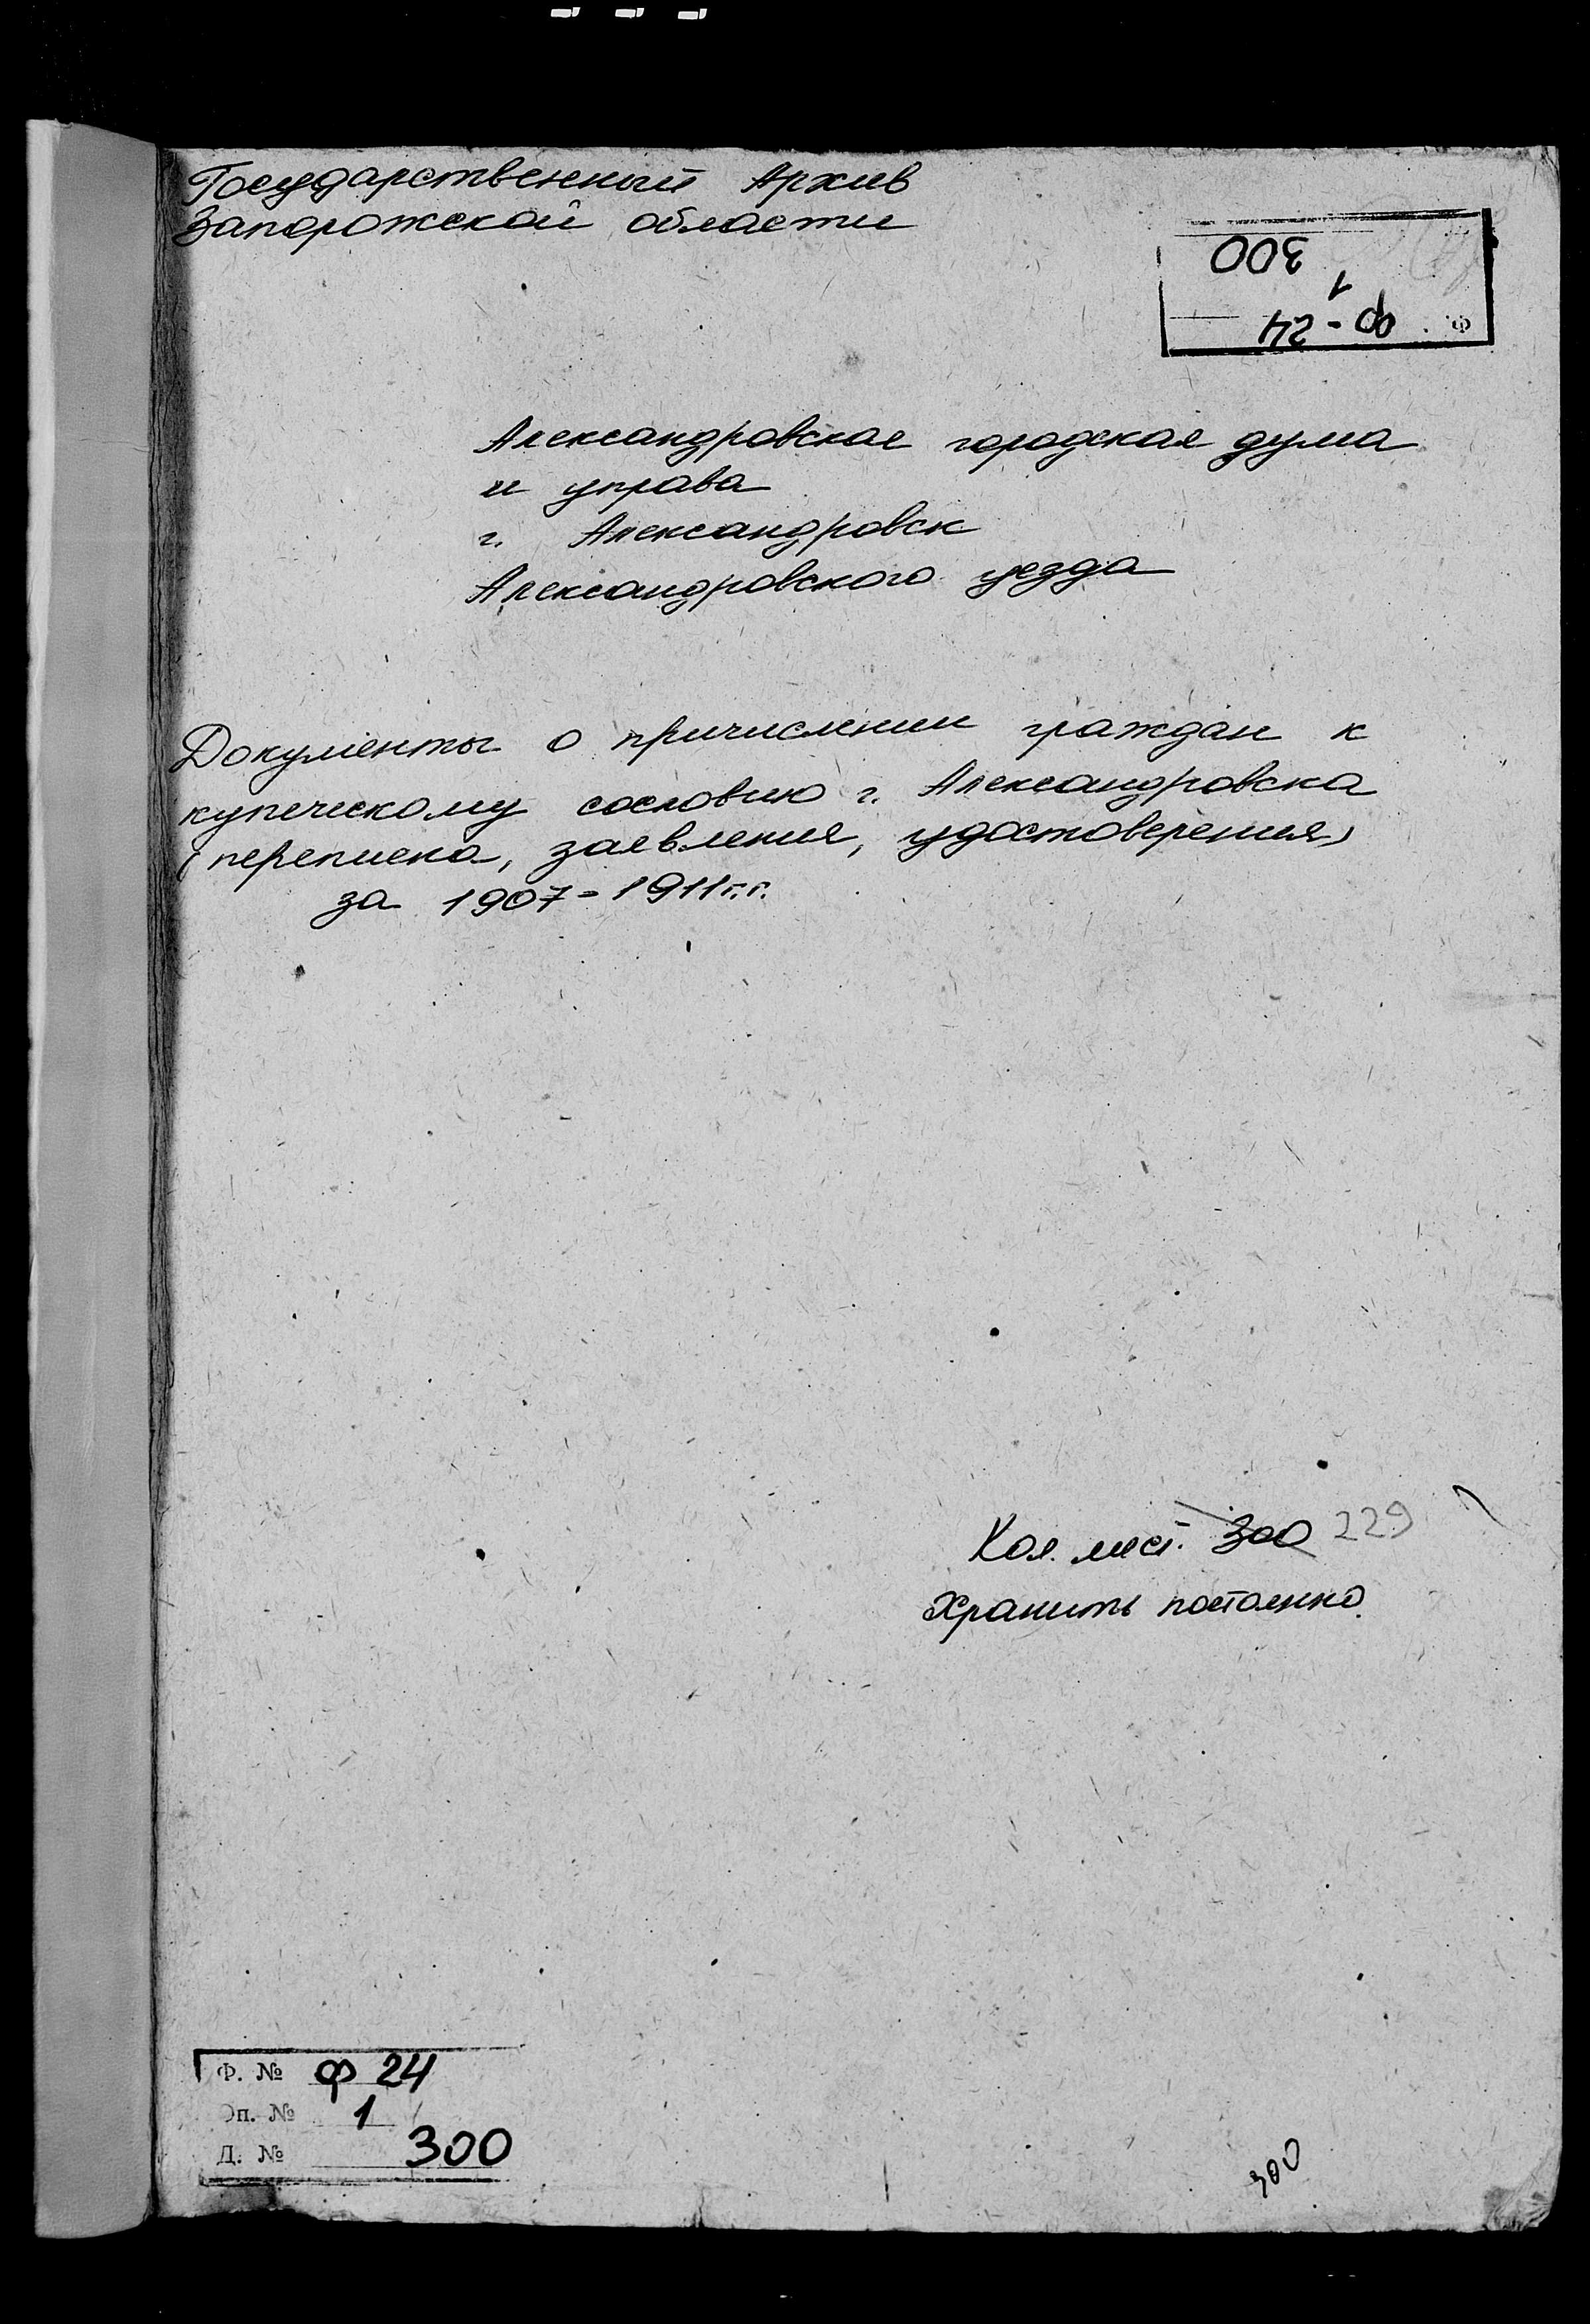 Государственный Архив
Запорожской области
300
1
Ф. Ф-24
Александровская городская дума
и управа
г. Александровск
Александровского уезда
Документы о причислении граждан к
купеческому сословию г. Александровска
(переписка, заявления, удостоверения)
за 1907-1911 г.г.
Кол. лист. 300 229
Хранить постоянно.
Ф. № Ф 24
Оп. № 1
Д. № 300
300